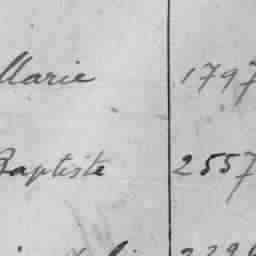 Marie 1797
Baptiste 2557